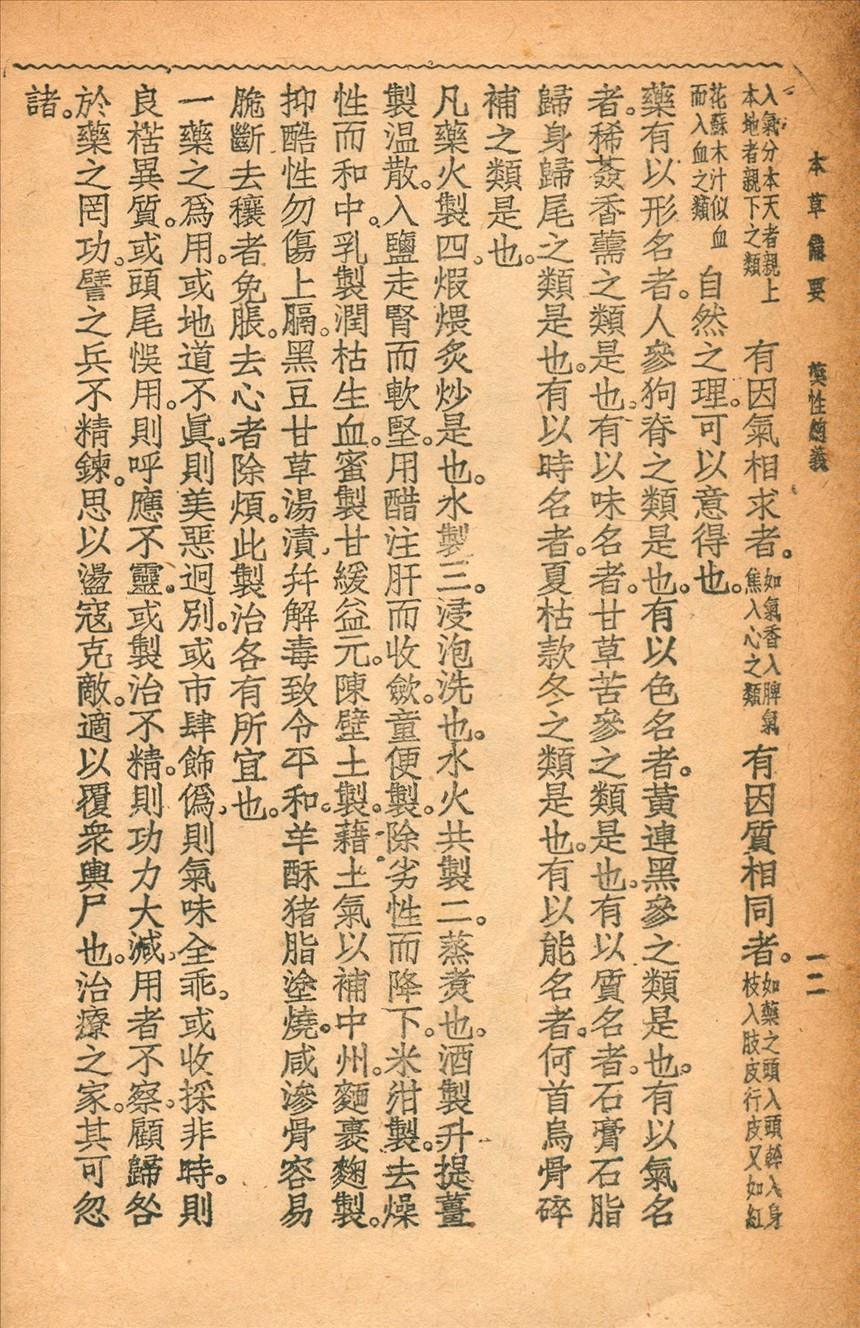 本草備要　藥性總義　一二
入氣分本天者親上
本地者親下之類　有因氣相求者。如氣香入脾氣
焦入心之類　有因質相同者。如藥之頭入頭幹入身
枝入肢皮行皮又如紅
花蘇木汁似血
而入血之類　自然之理。可以意得也。
藥有以形名者。人參狗脊之類是也。有以色名者。黃連黑參之類是也。有以氣名
者。稀薟香薷之類是也。有以味名者。甘草苦參之類是也。有以質名者。石膏石脂
歸身歸尾之類是也。有以時名者。夏枯款冬之類是也。有以能名者。何首烏骨碎
補之類是也。
凡藥火製四。煆煨炙炒是也。水製三。浸泡洗也。水火共製二。蒸煑也。酒製升提。薑
製温散。入鹽走腎而軟堅。用醋注肝而收斂。童便製。除劣性而降下。米泔製。去燥
性而和中。乳製潤枯生血。蜜製甘緩益元。陳壁土製。藉土氣以補中州。麵裹麴製。
抑酷性勿傷上膈。黑豆甘草湯漬。幷解毒致令平和。羊酥猪脂塗燒。咸滲骨容易
脆斷。去穰者免脹。去心者除煩。此製治各有所宜也。
一藥之爲用。或地道不眞。則美惡迥別。或市肆飾僞。則氣味全乖。或收採非時。則
良楛異質。或頭尾悞用。則呼應不靈。或製治不精。則功力大減。用者不察。顧歸咎
於藥之罔功。譬之兵不精鍊。思以盪寇克敵。適以覆衆輿尸也。治療之家。其可忽
諸。